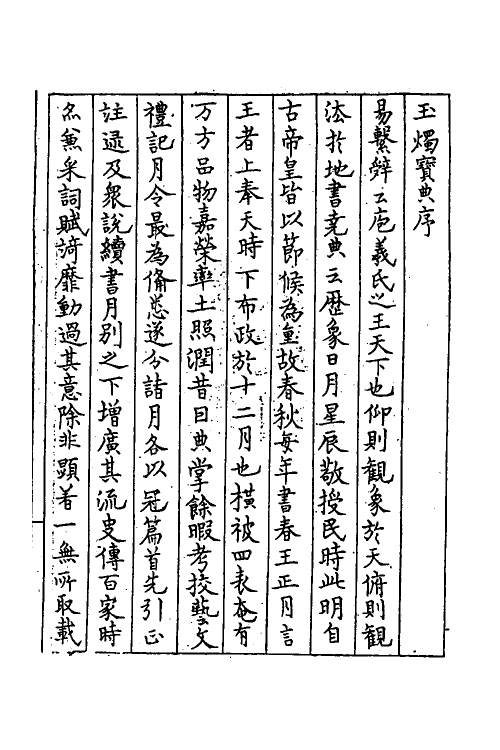 玉燭寶典序
易繫辝云庖羲氏之王天下也仰則觀象於天俯則觀
法於地書堯典云歷象日月星辰敬授民時此明自
古帝皇皆以節候為重故春秋每年書春王正月言
王者上奉天時下布政於十二月也橫被四表奄有
万方品物嘉榮率土照潤昔因典掌餘暇考挍藝文
禮記月令最為俻悉遂分諸月各以冠篇首先引正
註逯及衆說續書月別之下增廣其流史傳百家時
亦兼采詞賦綺靡動過其意除非顯著一無所取載